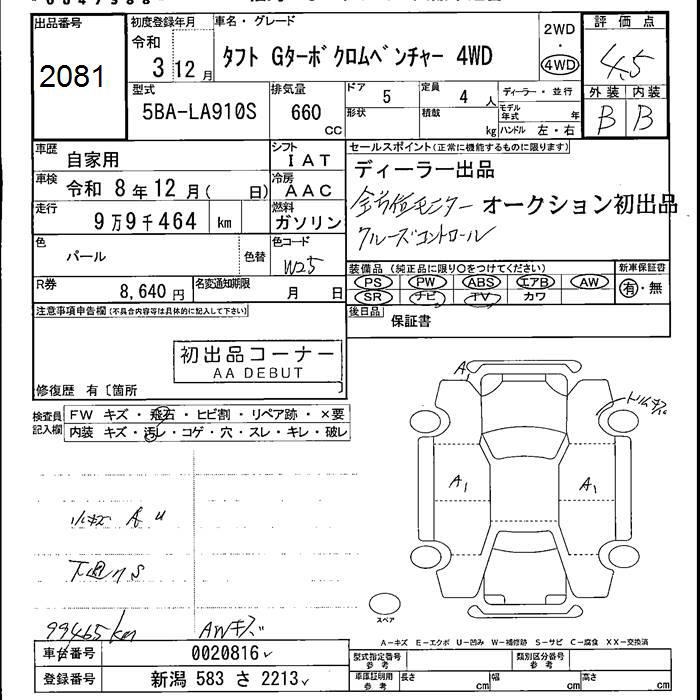 出品番号
2081
初度登録年月
令和
3 12 月
車名・グレード
タフト Gターボ クロムベンチャー 4WD
2WD
・
4WD
評価点
4.5
外装 内装
B B
型式
5BA-LA910S
排気量
660
CC
ドア
5
形状
定員
4 人
積載
kg
ディーラー・並行
モデル年式 年
ハンドル 左・右
車歴
自家用
シフト
IAT
車検
令和 8年 12月( 日)
冷房
AAC
走行
9万9千464 km
燃料
ガソリン
色
パール
色替
色コード
W25
R券
8,640 円
名変通知期限
月 日
セールスポイント(正常に機能するものに限ります)
ディーラー出品
全方位モニター オークション初出品
クルーズコントロール
装備品(純正品に限り○をつけてください)
PS PW ABS エアB AW
SR ナビ TV カワ
新車保証書
有・無
後日品
保証書
注意事項申告欄(不具合内容等は具体的に記入して下さい)
初出品コーナー
AA DEBUT
修復歴 有〔箇所 〕
検査員記入欄
FW キズ・飛石・ヒビ割・リペア跡・×要
内装 キズ・汚レ・コゲ・穴・スレ・キレ・破レ
小キズ A U
下回りS
99465km
AWキズ
A
トリムキズ
A1
A1
スペア
A-キズ E-エクボ U-凹み W-補修跡 S-サビ C-腐食 XX-交換済
車台番号
0020816
登録番号
新潟 583 さ 2213
型式指定番号
参考
類別区分番号
参考
車庫証明用
参考
長さ cm
幅 cm
高さ cm